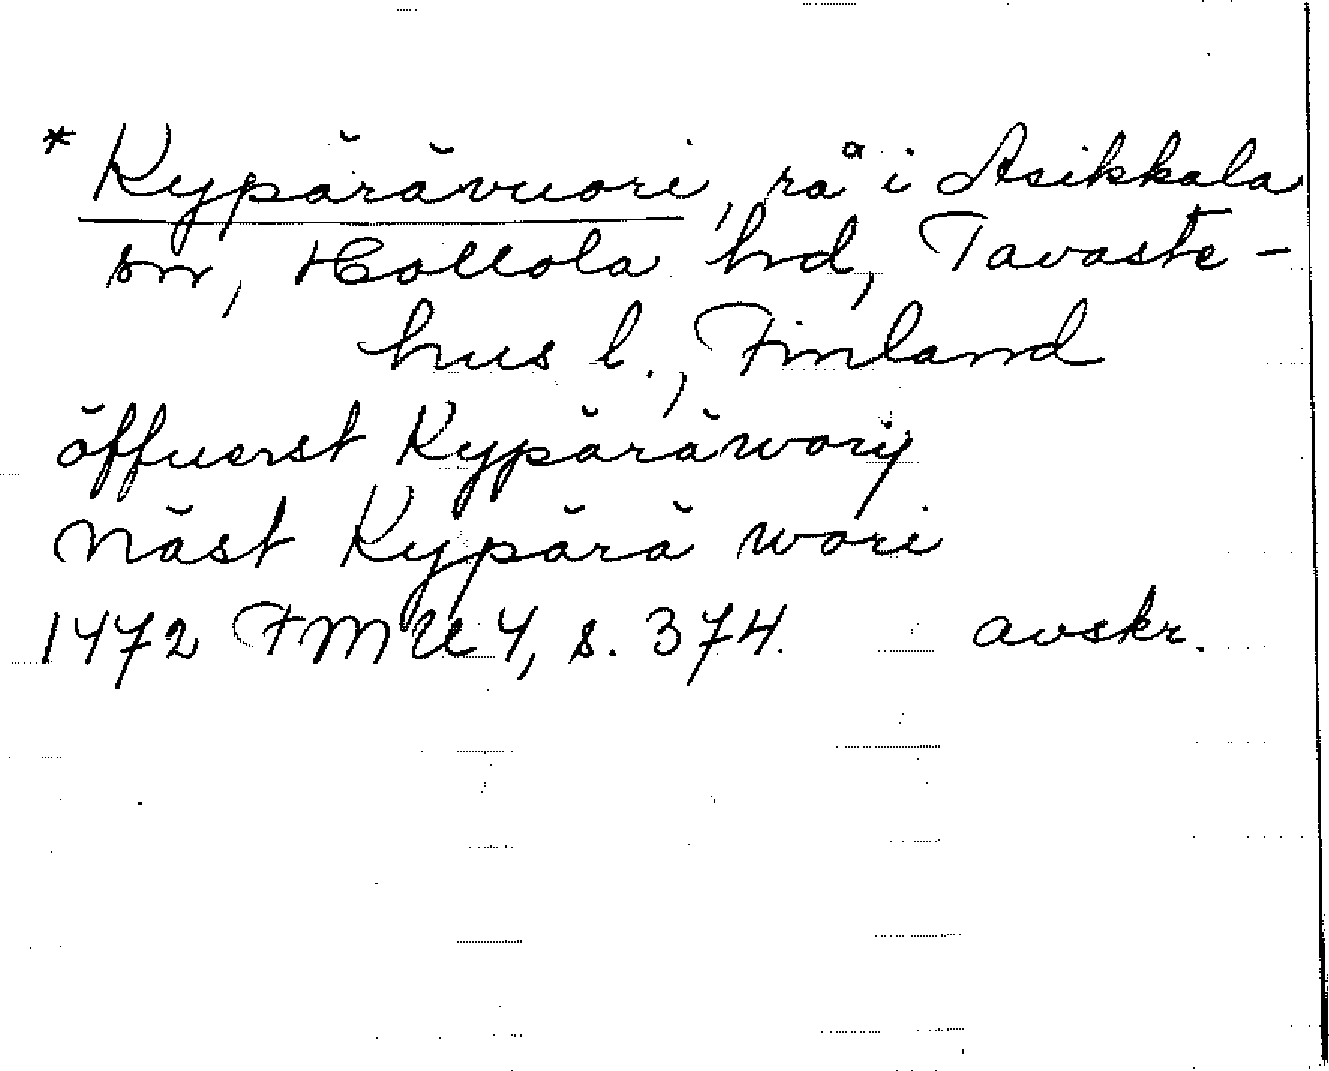 * Kypärävuori, rå i Asikkala
sn, Hollola hrd, Tavaste-
hus l., Finland
öffuerst Kypäräworij
Näst Kypärä wori
1472 FMU 4, s. 374. avskr.